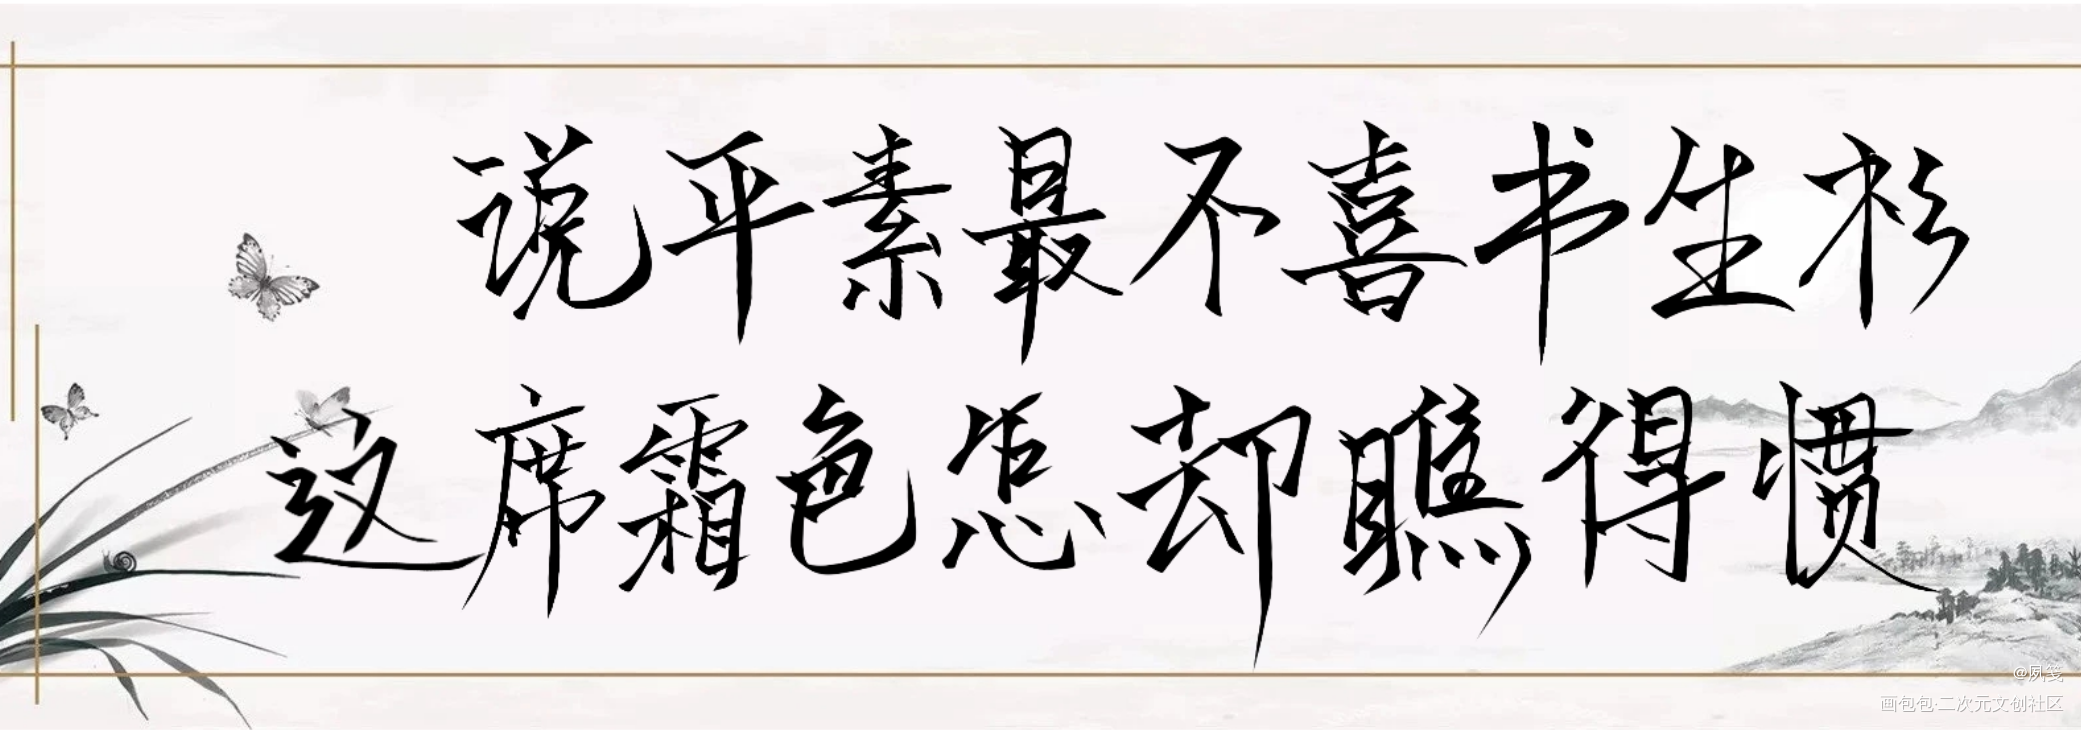 说平素最不喜书生衫
这席霜色怎却瞧得惯
@夙笺
画包包·二次元文创社区